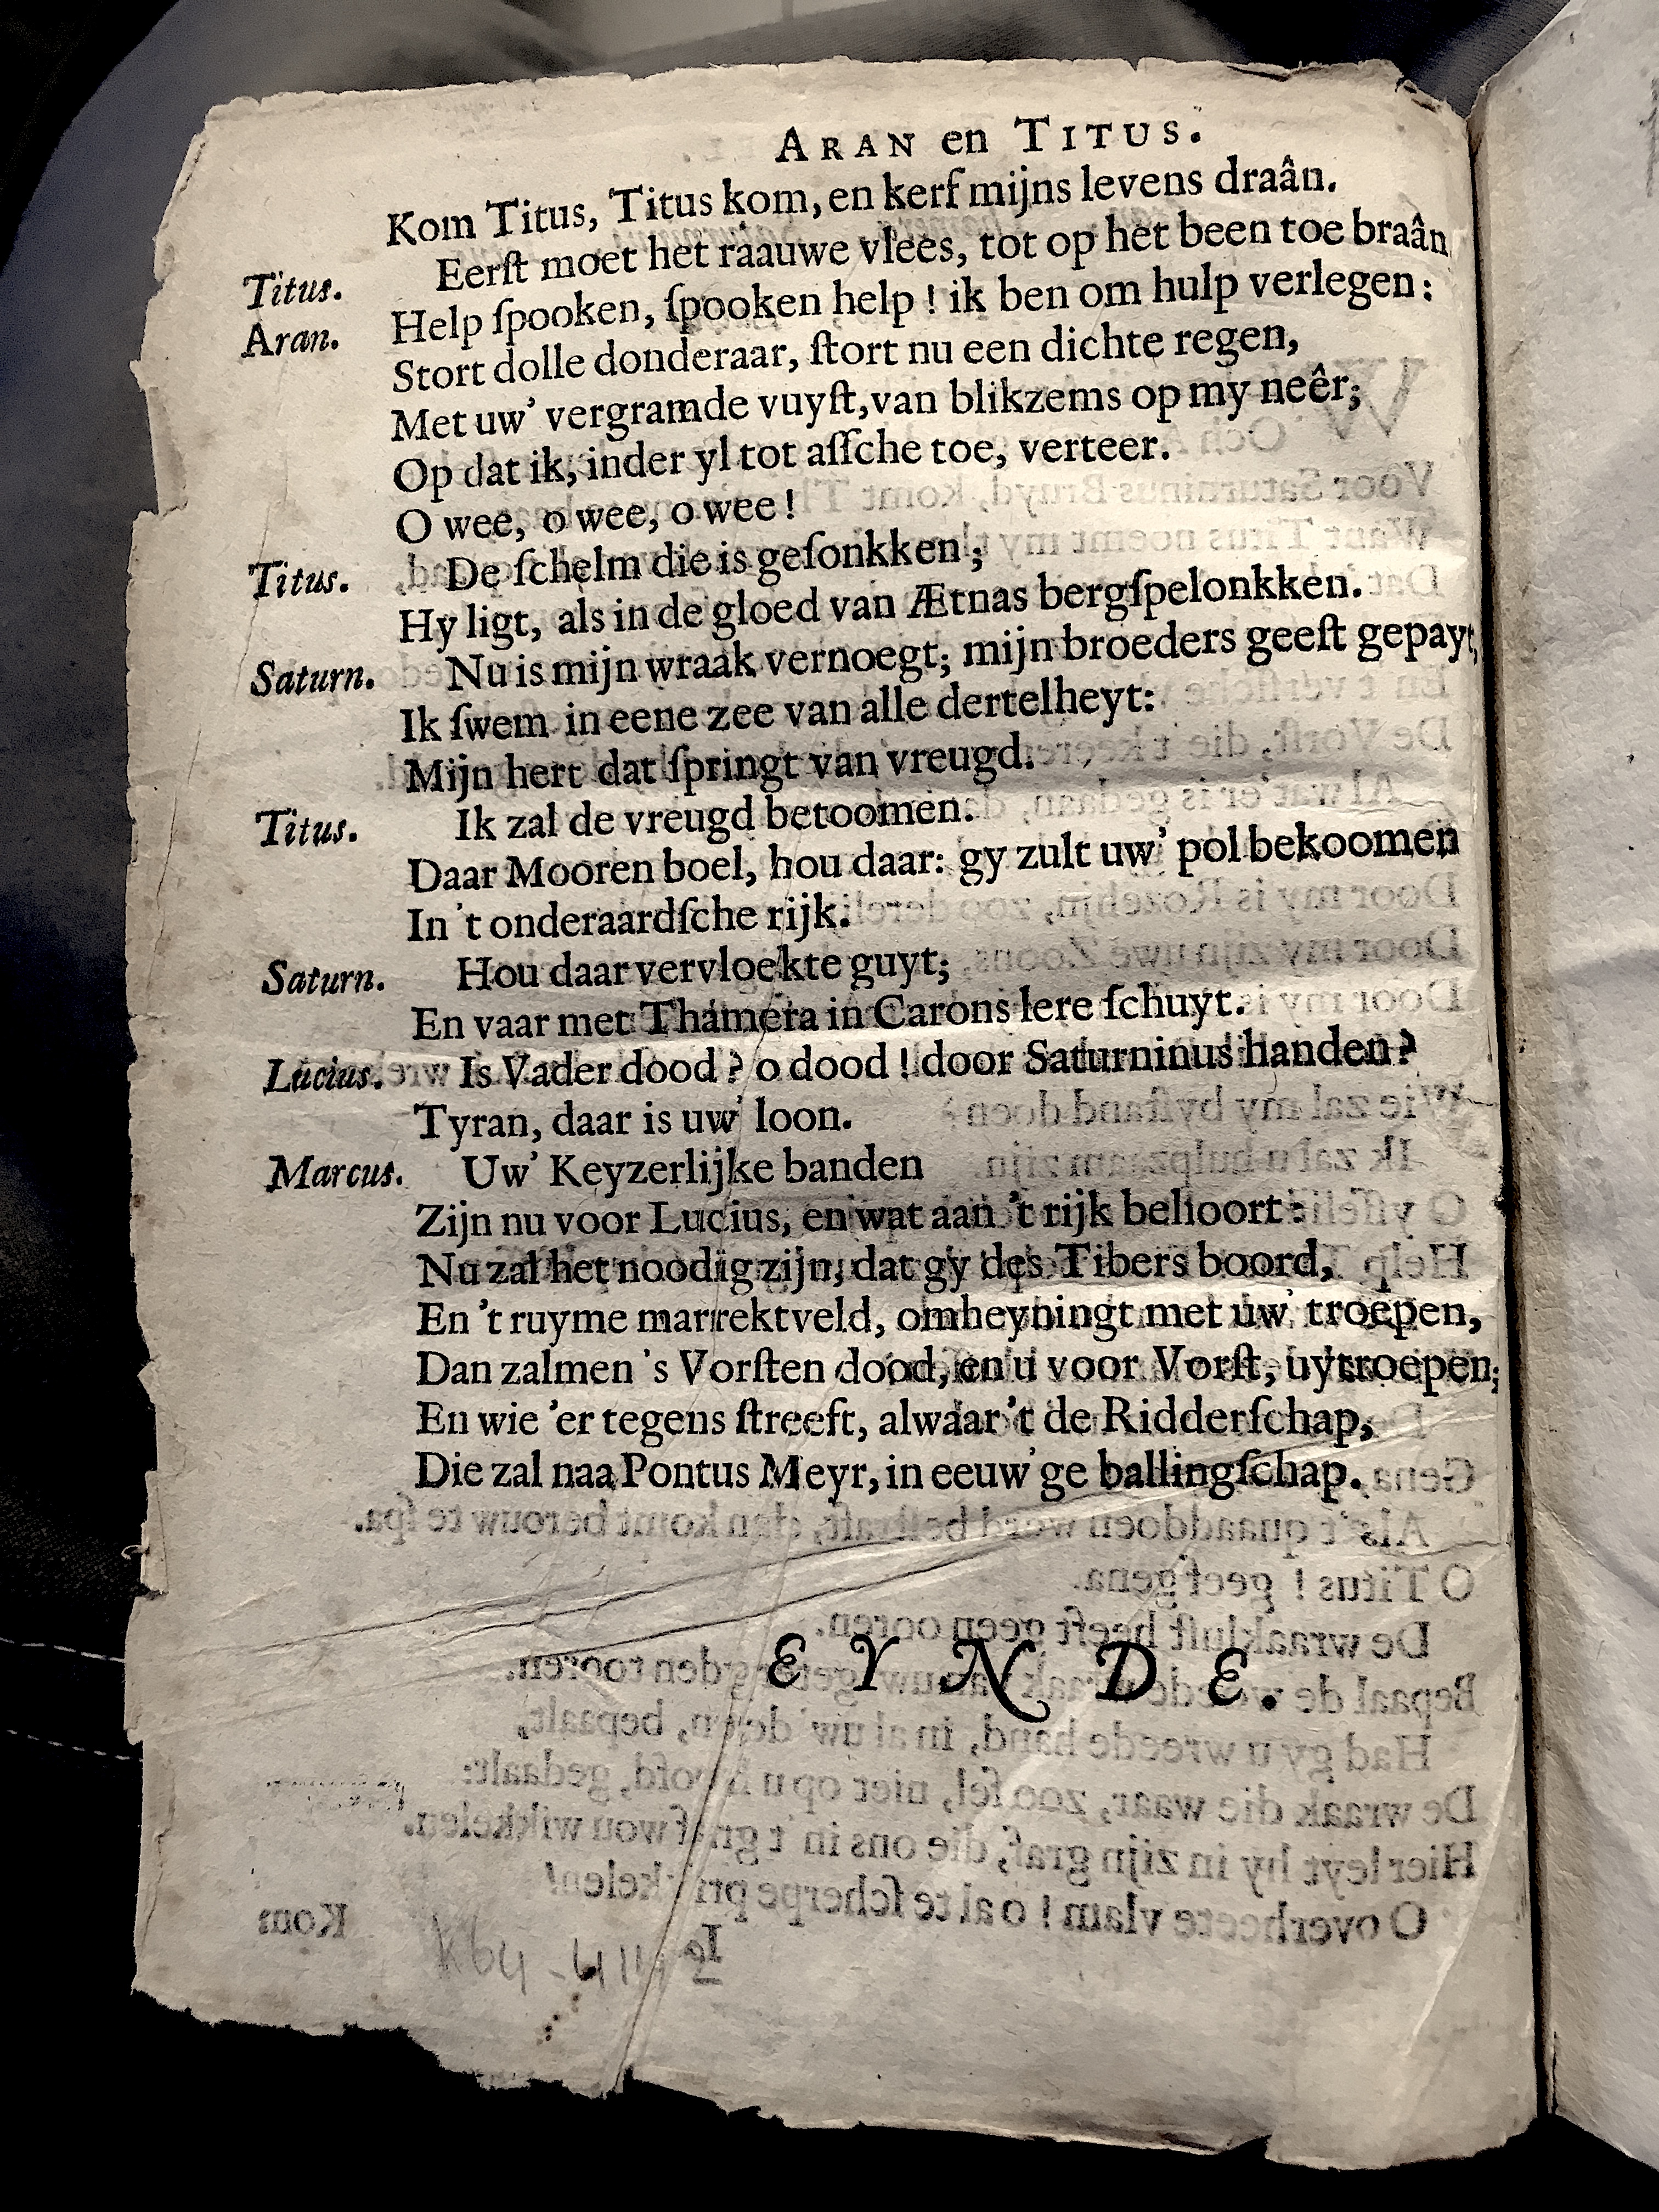 ARAN en TITUS.
Kom Titus, Titus kom, en kerf mijns levens draân.
Titus. Eerſt moet het raauwe vlees, tot op het been toe braân
Aran. Help ſpooken, ſpooken help! ik ben om hulp verlegen:
Stort dolle donderaar, ſtort nu een dichte regen,
Met uw' vergramde vuyſt, van blikzems op my neêr;
Op dat ik, inder yl tot aſſche toe, verteer.
O wee, o wee, o wee!
Titus. De ſchelm die is geſonkken;
Hy ligt, als in de gloed van Ætnas bergſpelonkken.
Saturn. Nu is mijn wraak vernoegt; mijn broeders geeſt gepayt,
Ik ſwem in eene zee van alle dertelheyt:
Mijn hert dat ſpringt van vreugd.
Titus. Ik zal de vreugd betoomen.
Daar Mooren boel, hou daar: gy zult uw' pol bekoomen
In 't onderaardſche rijk.
Saturn. Hou daar vervloekte guyt;
En vaar met Thamera in Carons lere ſchuyt.
Lucius. Is Vader dood? o dood! door Saturninus handen?
Tyran, daar is uw' loon.
Marcus. Uw' Keyzerlijke banden
Zijn nu voor Lucius, en wat aan 't rijk behoort:
Nu zal het noodig zijn, dat gy des Tibers boord,
En 't ruyme marrektveld, omheyningt met uw' troepen,
Dan zalmen 's Vorſten dood, en u voor Vorſt, uytroepen;
En wie 'er tegens ſtreeft, alwaar 't de Ridderſchap,
Die zal naa Pontus Meyr, in eeuw'ge ballingſchap.
EYNDE.